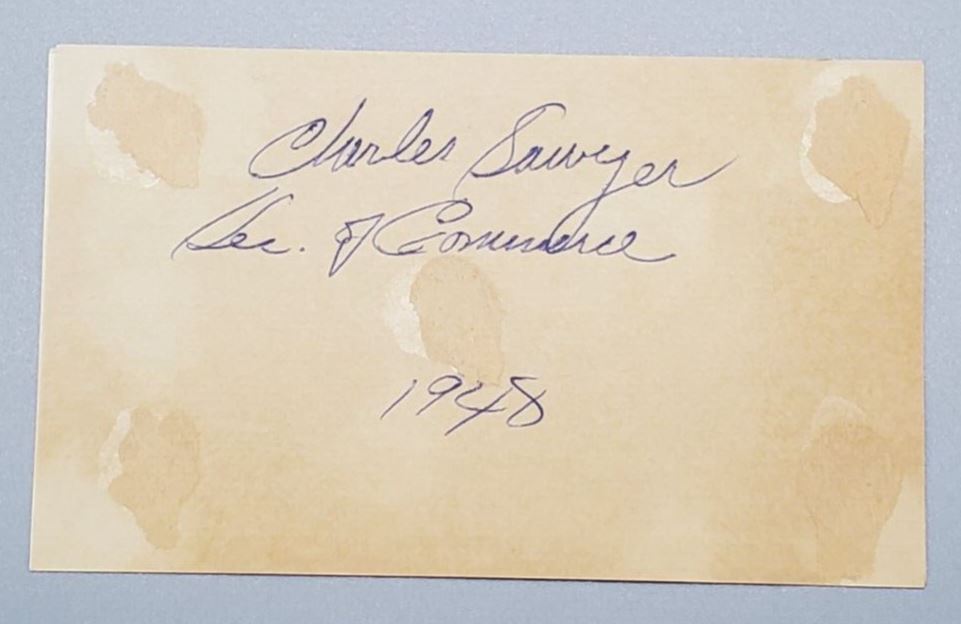 Charles Sawyer
Sec. of Commerce
1948